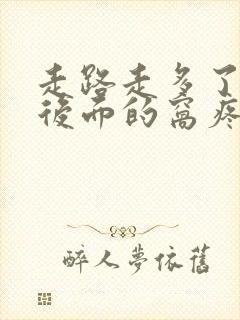 走路走多了
後面的窩疼
醉人夢依舊